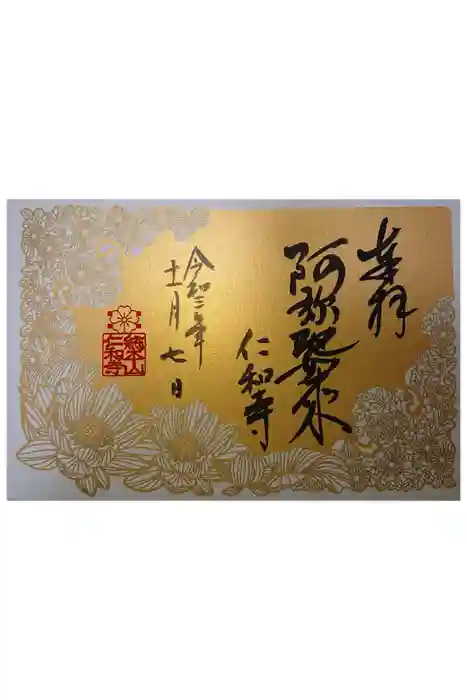 奉拝
阿弥陀如来
仁和寺
令和三年
十一月七日
総本山
仁和寺